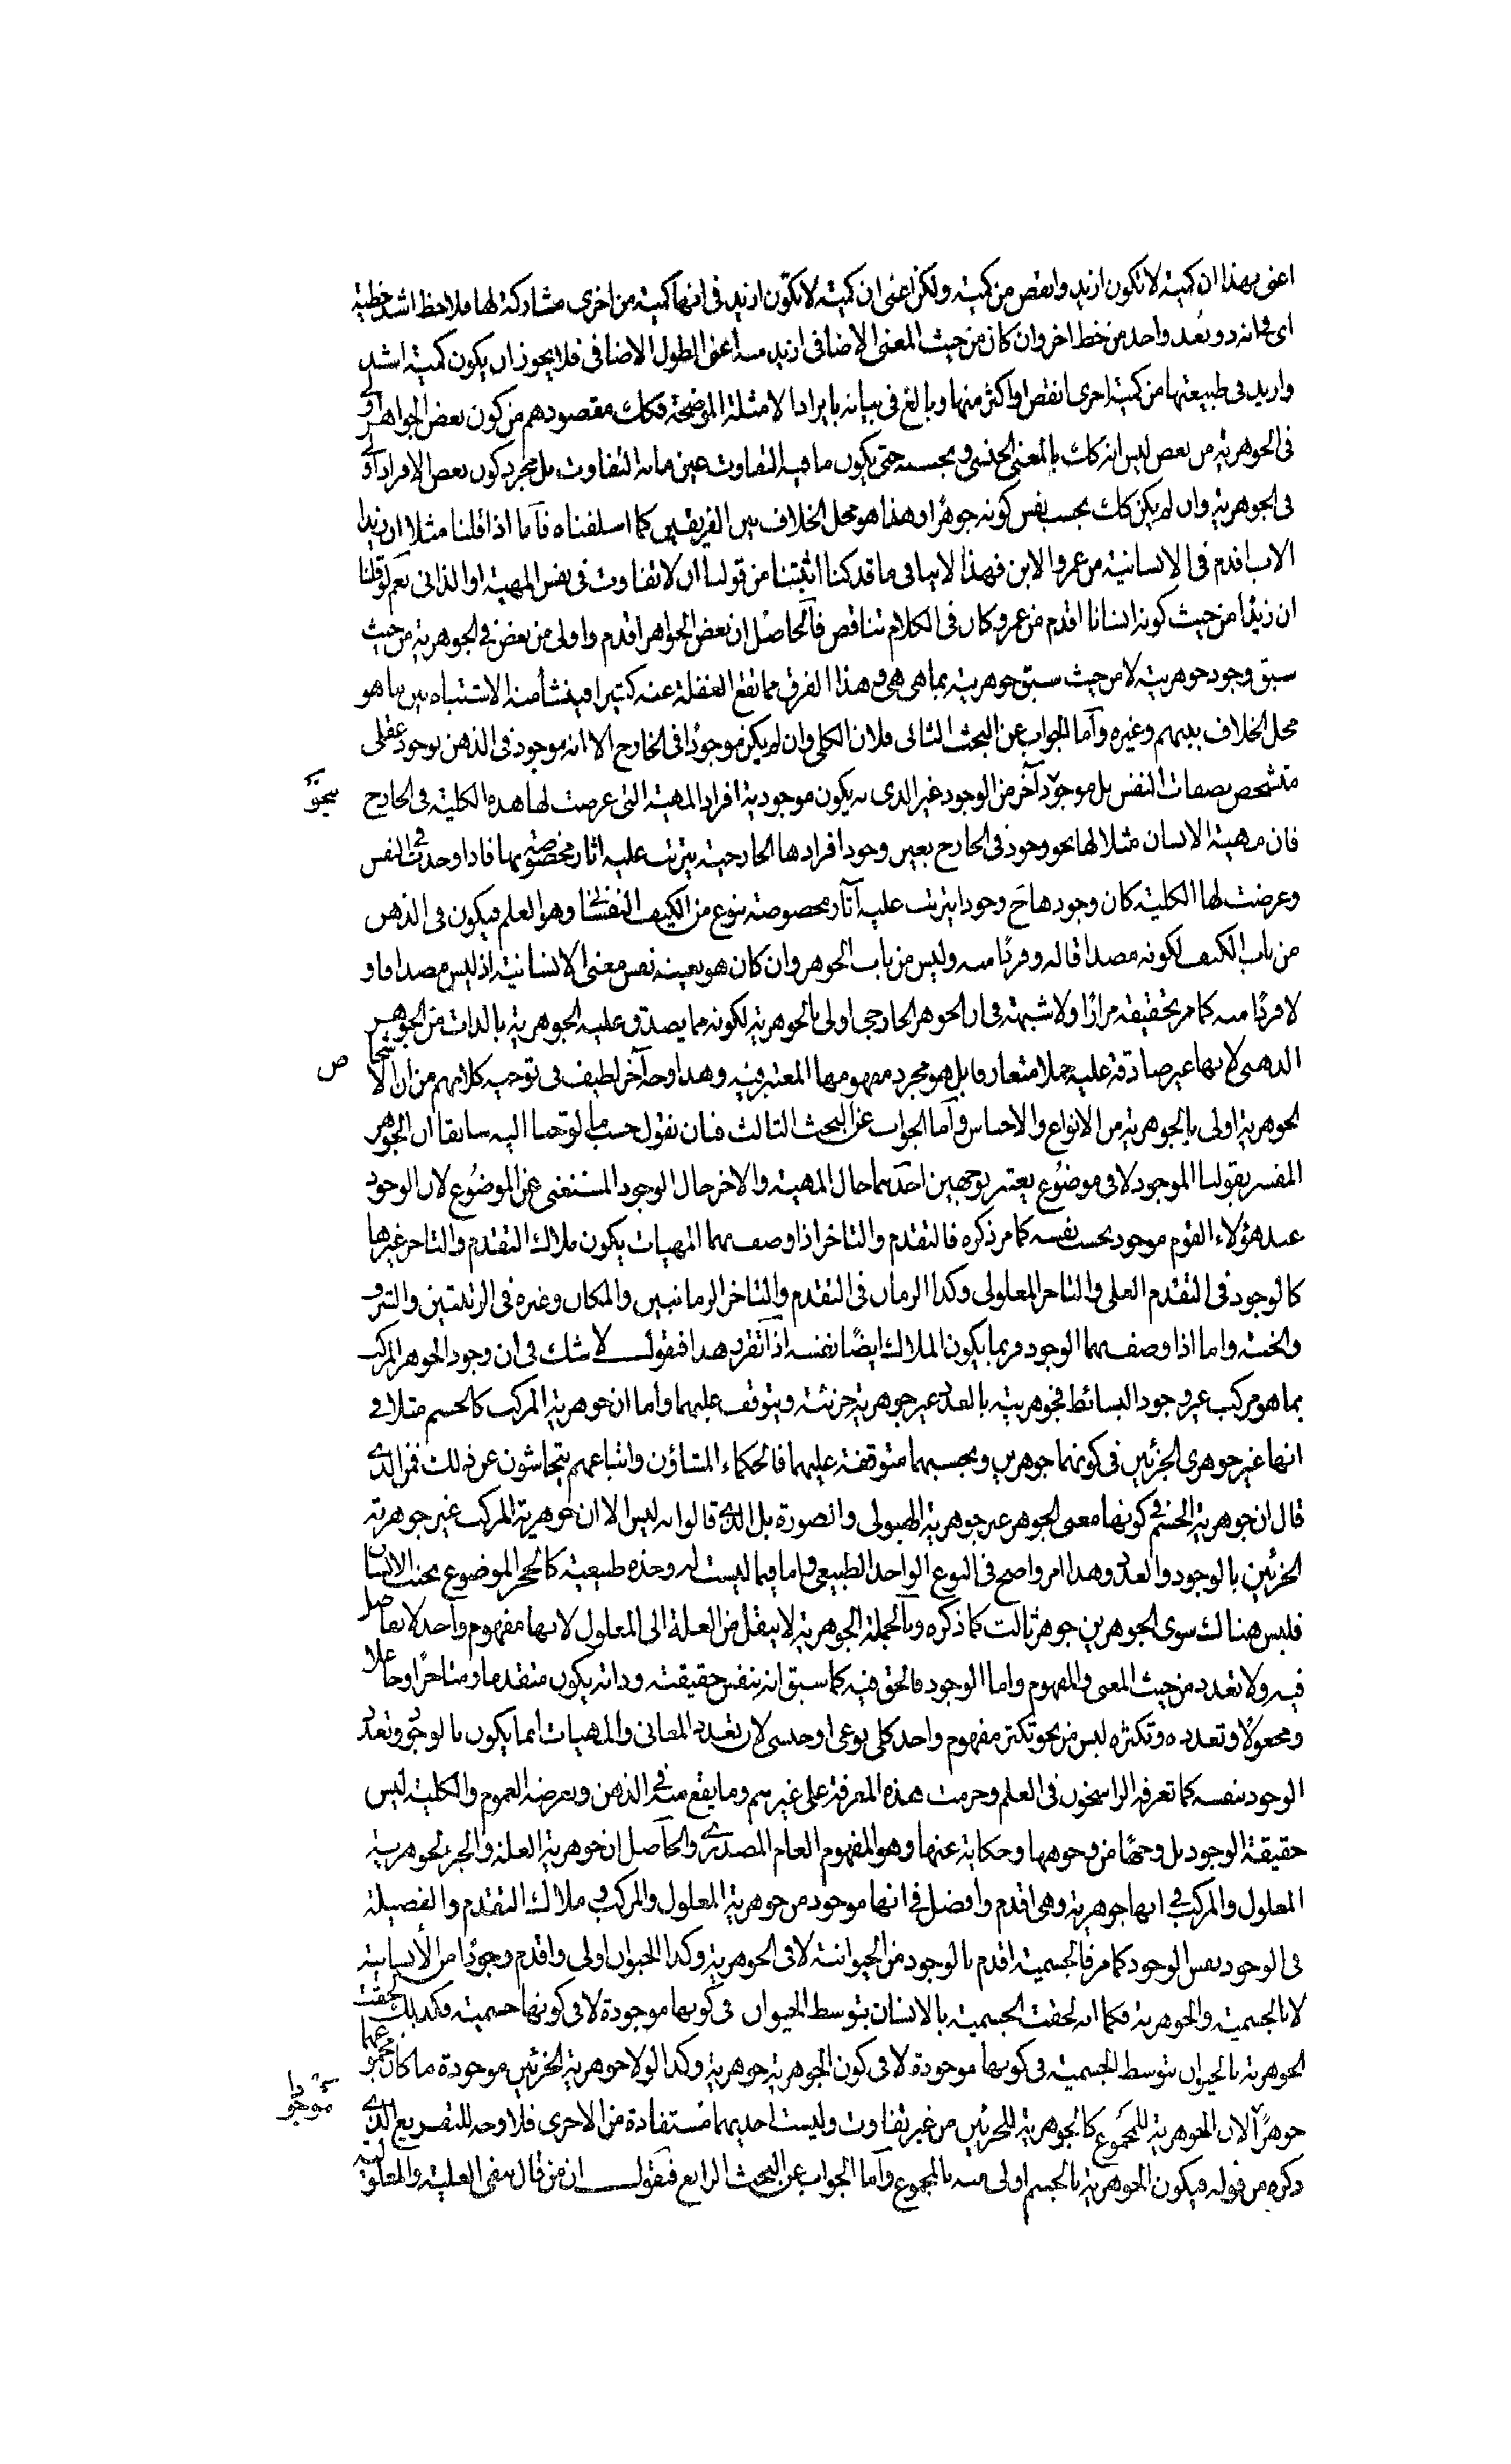 اعنى بهذا ان كمية لا تكون ازيد وانقص من كمية ولكن اعنى ان كمية لا تكون ازيد فى انها كمية من اخرى مشاركة لها فلا خط اشد خطية
اى فى انه ذو بُعد واحد من خط اخر وان كان من حيث المعنى الاضافى ازيد منه اعنى الطول الاضافى فلا يجوز ان يكون كمية اشد
وازيد فى طبيعتها من كمية اخرى انقص او اكثر منها وبالغ فى بيانه بايراد الامثلة الموضحة فكان مقصودهم من كون بعض الجواهر
فى الجوهرية من بعض ليس انه كان بالمعنى الجنسى وبحسبه حتى يكون ما فيه التفاوت عين ما به التفاوت بل مجرد كون بعض الافراد
فى الجوهرية وان لم يكن كان بحسب نفس كونه جوهرًا وهذا هو محل الخلاف بين الفريقين كما اسلفناه فآما اذا قلنا مثلا ان زيدا
الاب اقدم فى الانسانية من عمرو الابن فهذا لا ينافى ما قد كنا اثبتنا من قولنا ان لا تفاوت فى نفس المهية او الذاتى نعم لو قلنا
ان زيدًا من حيث كونه انسانا اقدم من عمرو كان فى الكلام تناقض فالحاصل ان بعض الجواهر اقدم واولى من بعض فى الجوهرية من حيث
سبق وجود جوهريته لا من حيث سبق جوهريته بما هى هى وهذا الفرق مما تقع الغفلة عنه كثيرا فينشأ منه الاشتباه بين ما هو
محل الخلاف بينهم وغيره وآما الجواب عن البحث الثانى فلان الكلى وان لم يكن موجودًا فى الخارج الا انه موجود فى الذهن بوجود عقلى
متشخص بصفات النفس بل موجود آخر من الوجود غير الذى به يكون موجودية افراد المهية التى عرضت لها هذه الكلية فى الخارج
فان مهية الانسان مثلا لها نحو وجود فى الخارج بعين وجود افرادها الخارجية يترتب عليه اثار مخصوصة بها فاذا وجدت فى النفس
وعرضت لها الكلية كان وجودها ح وجودا يترتب عليه آثار مخصوصة بنوع من الكيف النفسانى وهو العلم فيكون فى الذهن
من باب الكيف لكونه مصداقا له وفردًا منه وليس من باب الجوهر وان كان هو بعينه نفس معنى الانسانية اذ ليس مصداقا و
لا فردًا منه كما مر تحقيقه مرارًا ولا شبهة فى ان الجوهر الخارجى اولى بالجوهرية لكونه مما يصدق عليه الجوهرية بالذات من الجوهر
الذهنى لانها غير صادقة عليه حملا متعارفا بل هو مجرد مفهومها المعتبر فيه وهذا وجه آخر لطيف فى توجيه كلامهم من ان الاشخا ص
الجوهرية اولى بالجوهرية من الانواع والاجناس وآما الجواب عن البحث الثالث فبان نقول حسب ما لوحنا اليه سابقا ان الجوهر
المفسر بقولنا الموجود لا فى موضوع يعتبر بوجهين احدهما حال المهية والاخر حال الوجود المستغنى عن الموضوع لان الوجود
عند هؤلاء القوم موجود بحسب نفسه كما مر ذكره فالتقدم والتاخر اذا وصف بهما المهيات يكون ملاك التقدم والتاخر غيرها
كالوجود فى التقدم العلى والتاخر المعلولى وكذا الزمان فى التقدم والتاخر الزمانيين والمكان وغيره فى الرتبيين والشرف
والخسة واما اذا وصف بهما الوجود فربما يكون الملاك ايضًا نفسه اذا تقرر هذا فنقول لا شك فى ان وجود الجوهر المركب
بما هو مركب غير وجود البسائط فجوهريته بالعدد غير جوهرية جزئيه ويتوقف عليهما واما ان جوهرية المركب كالجسم مثلا فى
انها غير جوهرى الجزئين فى كونهما جوهرين وبحسبهما متوقفة عليهما فالحكماء المشاؤن واتباعهم يتحاشون عن ذلك فمن الذى
قال ان جوهرية الجسم فى كونها معنى الجوهر غير جوهرية الهيولى والصورة بل الذى قالوا به ليس الا ان جوهرية المركب غير جوهرية
الجزئين بالوجود والعدد وهذا امر واضح فى النوع الواحد الطبيعى واما فيما ليست له وحدة طبيعية كالحجر الموضوع بجنب الانسان
فليس هناك سوى الجوهرين جوهر ثالث كما ذكره وبالجملة الجوهرية لا ينتقل من العلة الى المعلول لانها مفهوم واحد لا تفاضل
فيه ولا تعدد من حيث المعنى والمفهوم واما الوجود فالحق فيه كما سبق انه بنفس حقيقته وذاته يكون متقدما ومتاخرًا وجاعلا
ومجعولًا وتعدده وتكثره ليس من نحو تكثر مفهوم واحد كلى نوعى او جنسى لان تعدد المعانى والمهيات انما يكون بالوجود وتعدد
الوجود بنفسه كما تعرفه الراسخون فى العلم وحرمت هذه المعرفة على غيرهم وما يقع منه فى الذهن ويعرضه العموم والكلية ليس
حقيقة الوجود بل وجهًا من وجوهها وحكاية عنها وهو المفهوم العام المصدرى والحاصل ان جوهرية العلة والجزء لجوهرية
المعلول والمركب فى انها جوهرية وهى اقدم وافضل فى انها موجود من جوهرية المعلول والمركب و ملاك التقدم والفضيلة
فى الوجود نفس الوجود كما مر فالجسمية اقدم بالوجود من الحيوانية لا فى الجوهرية وكذا الحيوان اولى واقدم وجودًا من الأنسانية
لا بالجسمية والجوهرية فكما انه لحقت الجسمية بالانسان بتوسط الحيوان فى كونها موجودة لا فى كونها جسمية فكذلك لحقت
الجوهرية بالحيوان بتوسط الجسمية فى كونها موجودة لا فى كون الجوهرية جوهرية وكذا لولا جوهرية الجزئين موجودة ما كان مجموعهما
جوهرًا لان الجوهرية للمجموع كالجوهرية للجزئين من غير تفاوت وليست احديهما مستفادة من الاخرى فلا وجه للتفريع الذى
ذكره من قوله فيكون الجوهرية بالجسم اولى منه بالمجموع وآما الجواب عن البحث الرابع فنقول ان من قال بنفى العلية والمعلولية